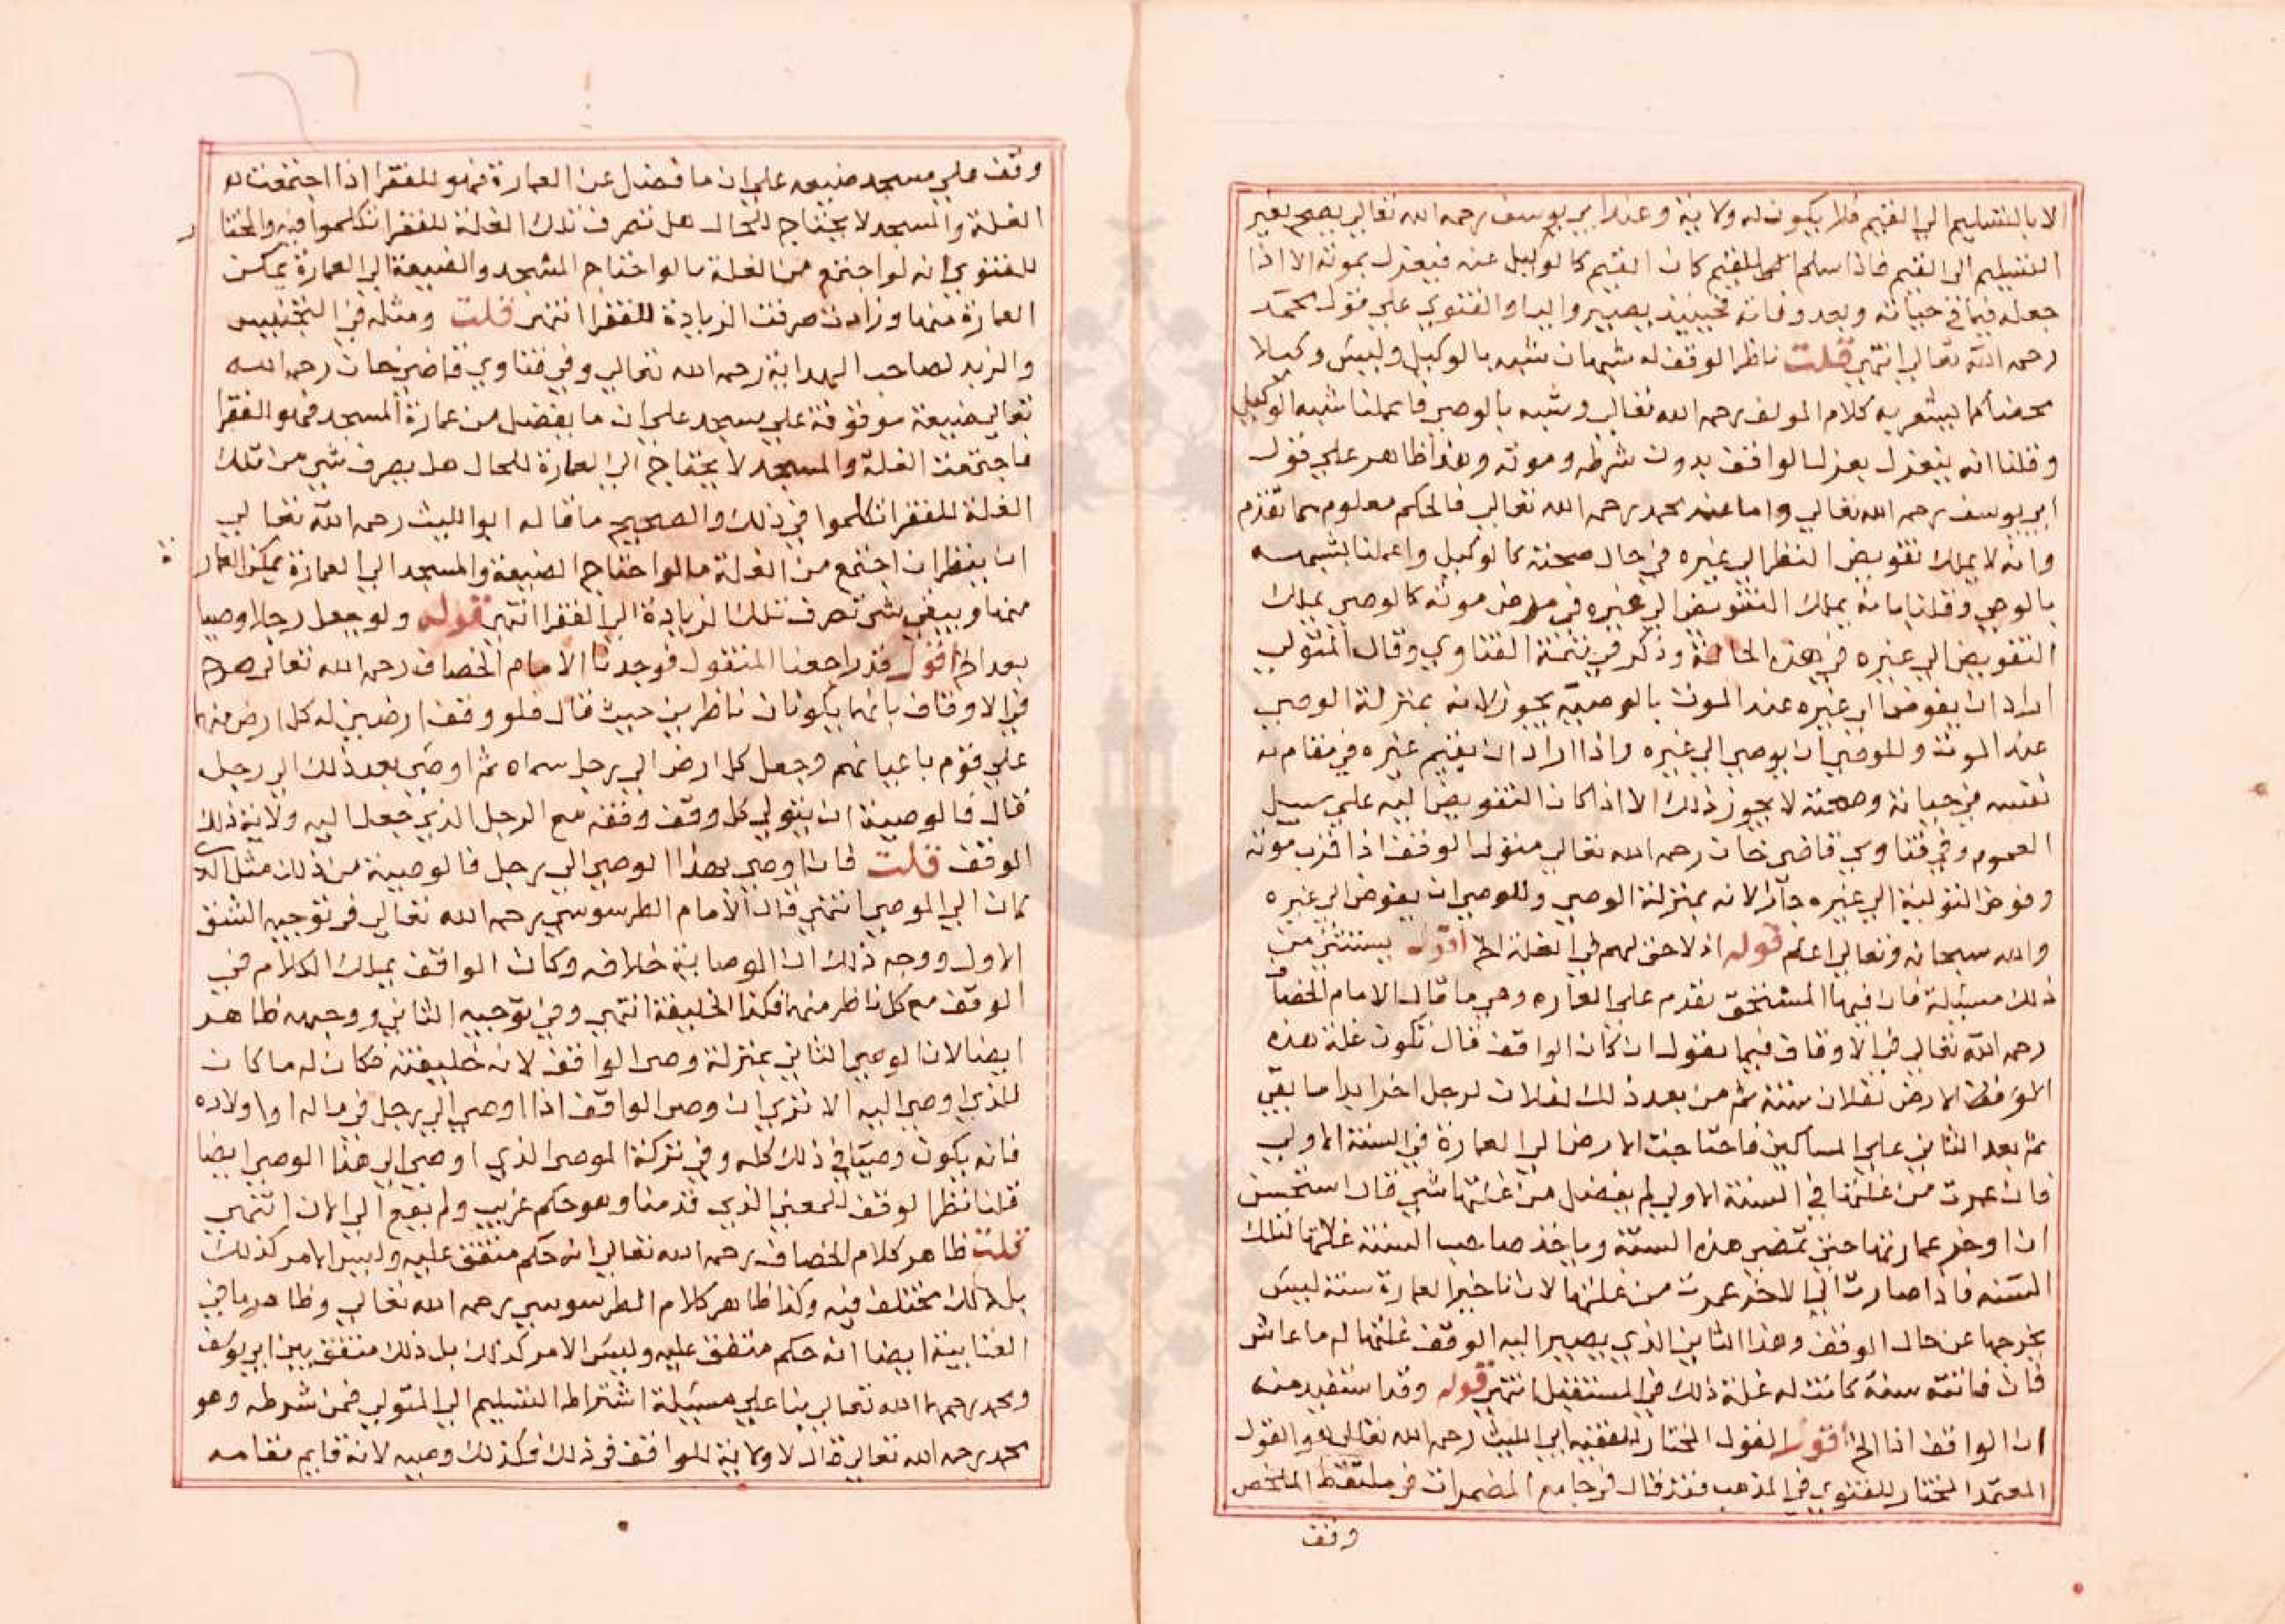 الا بالتسليم الى القيم فلا يكون له ولاية وعند ابي يوسف رحمه الله تعالى يصح بغير
التسليم الى القيم فاذا سلم الى القيم كان القيم كالوكيل عنه فينعزل بموته الا اذا
جعله قيما في حياته وبعد وفاته فحينيذ يصير والفتوى على قول محمد
رحمه الله تعالى انتهى قلت ناظر الوقف له شبهان شبه بالوكيل وليس وكيلا
محضا كما يشعر به كلام المولف رحمه الله تعالى وشبه بالوصي فاعملنا شبه الوكيل
وقلنا انه ينعزل بعزل الواقف بدون شرطه وموته وهذا ظاهر على قول
ابي يوسف رحمه الله تعالى واما عند محمد رحمه الله تعالى فالحكم معلوم مما تقدم
وانه لا يملك تفويض النظر الى غيره في حال صحته كالوكيل واعملنا شبهه
بالوصي وقلنا بانه يملك التفويض الى غيره في مرض موته كالوصي يملك
التفويض الى غيره في هذه الحالة وذكر في تتمة الفتاوي وقال المتولي
اراد ان يفوض الى غيره عند الموت بالوصية يجوز لانه بمنزلة الوصي
عند الموت وللوصي ان يوصي الى غيره واذا اراد ان يقيم غيره في مقام
نفسه في حياته وصحته لا يجوز ذلك الا اذا كان التفويض اليه على سبيل
العموم وفي فتاوي قاضي خان رحمه الله تعالى متولي الوقف اذا قرب موته
وفوض التولية الى غيره جاز لانه بمنزلة الوصي وللوصي ان يفوض الى غيره
والله سبحانه وتعالى اعلم قوله اذ لا حق لهم في الغلة الخ اقول يستثنى من
ذلك مسئلة فان فيها المستحق تقدم على العماره وهي ما قال الامام الخصاف
رحمه الله تعالى في الاوقاف فيما يقول ان كان الواقف قال تكون غلة هذه
الارض لفلان سنة ثم من بعد ذلك لفلان لرجل اخر ابدا ما بقي
ثم بعد الثاني على المساكين فاحتاجت الارض الى العمارة في السنة الاولى
فان عمرت من غلتها في السنة الاولى لم يفضل من غلتها شي قال استحسن
ان اوخر عمارتها حتى تمضي هذه السنة وياخذ صاحب السنة غلتها لتلك
السنه فاذا صارت الى الاخر عمرت من غلتها لان تاخير العمارة سنة ليس
يخرجها عن حال الوقف وهذا الثاني الذي يصير اليه الوقف غلتها له ما عاش
فان فاتته سنة كانت له غلة ذلك في المستقبل انتهى قوله وقد استفيد منه
ان الواقف اذا الخ اقول القول المختار للفقيه ابي الليث رحمه الله تعالى هو القول
المعتمد المختار للفتوى في المذهب فقد قال في جامع المضمرات في ملتقط الملخص
وقف
وقف على مسجد ضيعه على ان ما فضل عن العمارة فهو للفقرا اذا اجتمعت
الغلة والمسجد لا يحتاج للحال هل تصرف تلك الغلة للفقرا تكلموا فيه والمختار
للفتوى انه لو اجتمع من الغلة ما لو احتاج المسجد والضيعة الى العمارة يمكن
العمارة منها وزادت صرفت الزيادة للفقرا انتهى قلت ومثله في التجنيس
والمزيد لصاحب الهداية رحمه الله تعالى وفي فتاوي قاضي خان رحمه الله
تعالى ضيعة موقوفة على مسجد على ان ما يفضل من عمارة المسجد فهو للفقرا
فاجتمعت الغلة والمسجد لا يحتاج الى العمارة للحال هل يصرف شي من تلك
الغلة للفقرا تكلموا في ذلك والصحيح ما قاله ابو الليث رحمه الله تعالى
ان ينظر ان اجتمع من الغلة ما لو احتاج الضيعة والمسجد الى العمارة يمكن العمارة
منها ويبقى شي تصرف تلك الزيادة الى الفقرا انتهى قوله ولو جعل رجلا وصيا
بعد الخ اقول قد راجعنا المنقول فوجدنا الامام الخصاف رحمه الله تعالى صرح
في الاوقاف بانهما يكونان ناظرين حيث قال فلو وقف ارضين له كل ارض منهما
على قوم باعيانهم وجعل كل ارض الى رجل سماه ثم اوصى بعد ذلك الى رجل
قال فالوصية ان يتولى كل وقف وقفه مع الرجل الذي جعل اليه ولاية ذلك
الوقف قلت فان اوصى هذا الوصي الى رجل فالوصية من ذلك مثل الذي
كان الى الموصي انتهى قال الامام الطرسوسي رحمه الله تعالى في توجيه الشق
الاول ووجه ذلك ان الوصاية خلافه وكان الواقف يملك الكلام في
الوقف مع كل ناظر منهما فكذا الخليفة انتهى وفي توجيه الثاني ووجهه ظاهر
ايضا لان الوصي الثاني بمنزلة وصي الواقف لانه خليفته فكان له ما كان
للذي اوصى اليه الا ترى ان وصي الواقف اذا اوصى الى رجل في ماله او اولاده
فانه يكون وصيا في ذلك كله وفي تركة الموصي الذي اوصى الى هذا الوصي ايضا
قلنا نظر الوقف للمعنى الذي قدمنا وهو حكم غريب ولم يقع الى الان انتهى
قلت ظاهر كلام الخصاف رحمه الله تعالى انه حكم متفق عليه وليس الامر كذلك
بل ذلك مختلف فيه وكذا ظاهر كلام الطرسوسي رحمه الله تعالى وظاهر ما في
العتابية ايضا انه حكم متفق عليه وليس الامر كذلك بل ذلك متفق بين ابي يوسف
ومحمد رحمهما الله تعالى بنا على مسئلة اشتراط التسليم الى المتولي فمن شرطه وهو
محمد رحمه الله تعالى قال لا ولاية للواقف في ذلك فكذلك وصيه لانه قايم مقامه